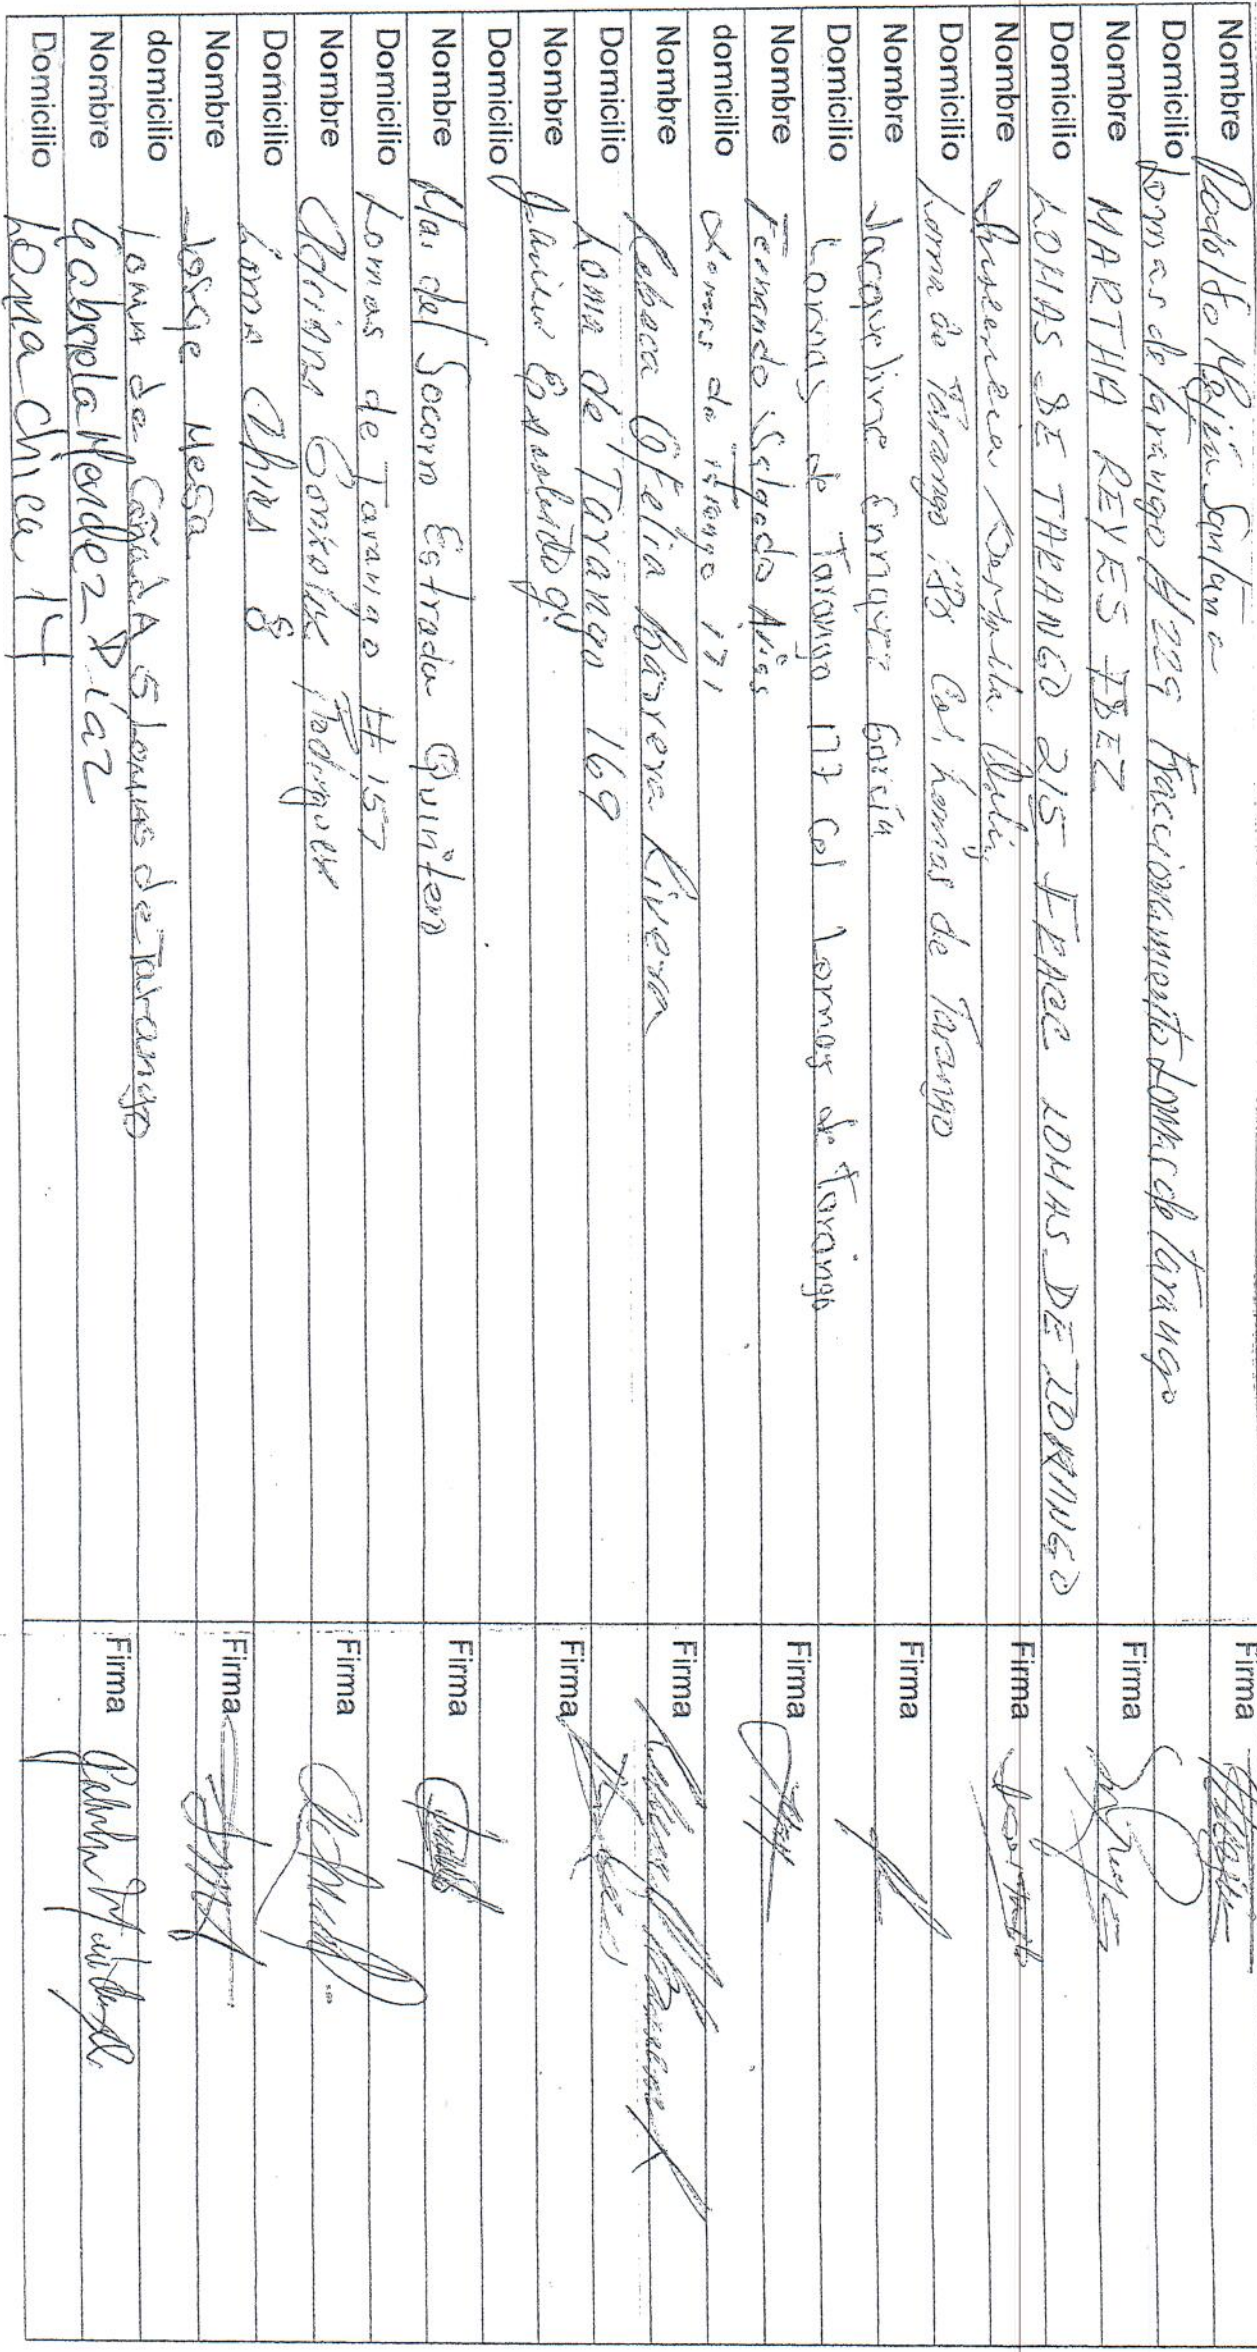 Nombre Rodolfo Mejía Santana Firma
Domicilio Lomas de Tarango #229 Fraccionamiento Lomas de Tarango
Nombre MARTHA REYES FDEZ Firma
Domicilio LOMAS DE TARANGO 215 FRACC LOMAS DE TARANGO
Nombre Firma
Domicilio Loma de Tarango 185 Col. Lomas de Tarango
Nombre Jacqueline Enriquez García Firma
Domicilio Lomas de Tarango 177 Col Lomas de Tarango
Nombre Fernando Salgado Arias Firma
domicilio Lomas de Tarango 171
Nombre Rebeca Ofelia Barrera Rivera Firma
Domicilio Loma de Tarango 169
Nombre Javier Firma
Domicilio
Nombre Ma. del Socorro Estrada Quintero Firma
Domicilio Lomas de Tarango # 157
Nombre Adriana González Rodríguez Firma
Domicilio Loma Chica 8
Nombre Jorge Mesa Firma
domicilio Loma de Cañada 5 Lomas de Tarango
Nombre Gabriela Mendez Díaz Firma
Domicilio Loma Chica 14